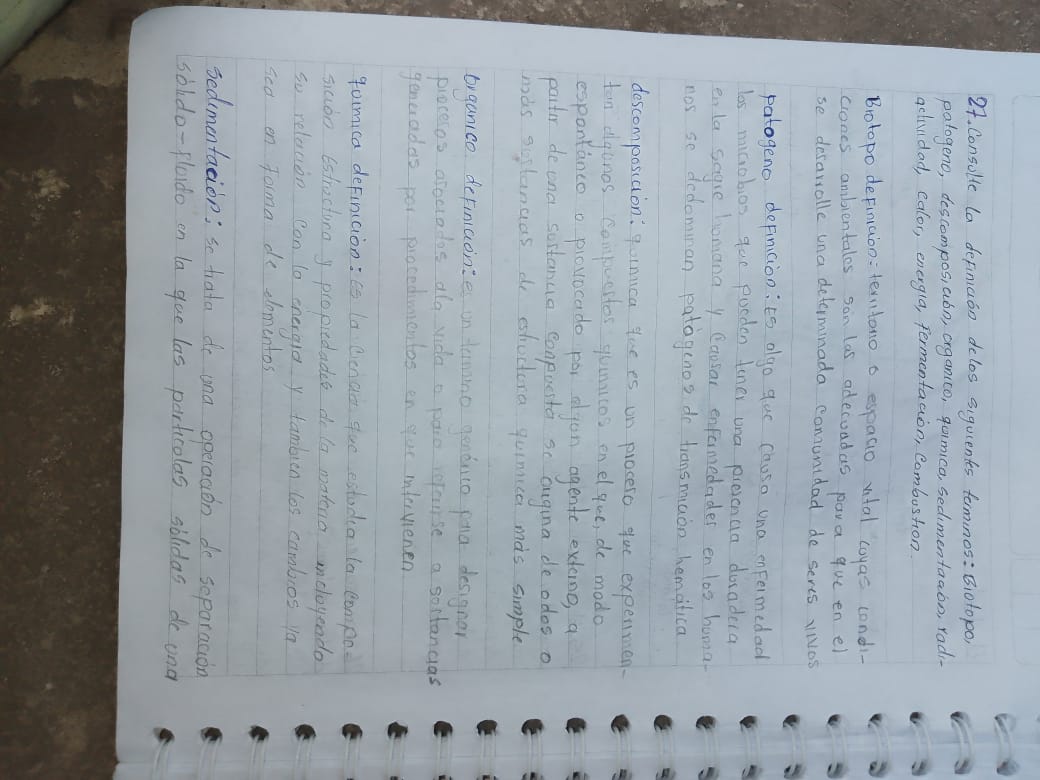 27. Consulte la definición delos siguientes terminos: Biotopo,
patogeno, descomposición, organico, quimica, sedimentación, radi-
actividad, calor, energia, fermentación, Combustion.
Biotopo definicion: territorio o espacio vital cuyas condi-
ciones ambientales son las adecuadas para que en el
se desarrolle una determinada comunidad de seres vivos
patogeno definicion: Es algo que causa una enfermedad
los microbios que pueden tener una presencia duradera
en la sagre humana y causar enfermedades en los huma-
nos se dedominan patogenos de transmición hemática
descomposicion: quimica que es un proceso que experimen-
tan algunos compuestos quimicos en el que, de modo
espontánico o provocado por algun agente externo, a
partir de una sustancia compuesta se origina de odos o
más sustancias de estructura quimica más simple
organico definicion: e un termino genérico para designar
procesos asociados ala vida o para referirse a sustancias
generadas por procedimientos en que intervienen.
quimica definicion: Es la ciencia que estudia la compo-
sición Estructura y propiedades de la materia incluyendo
su relación con la energia y tambien los cambios ya
sea en forma de elementos
Sedimentación: se trata de una operación de separación
sólido-fluido en la que las particulas sólidas de una